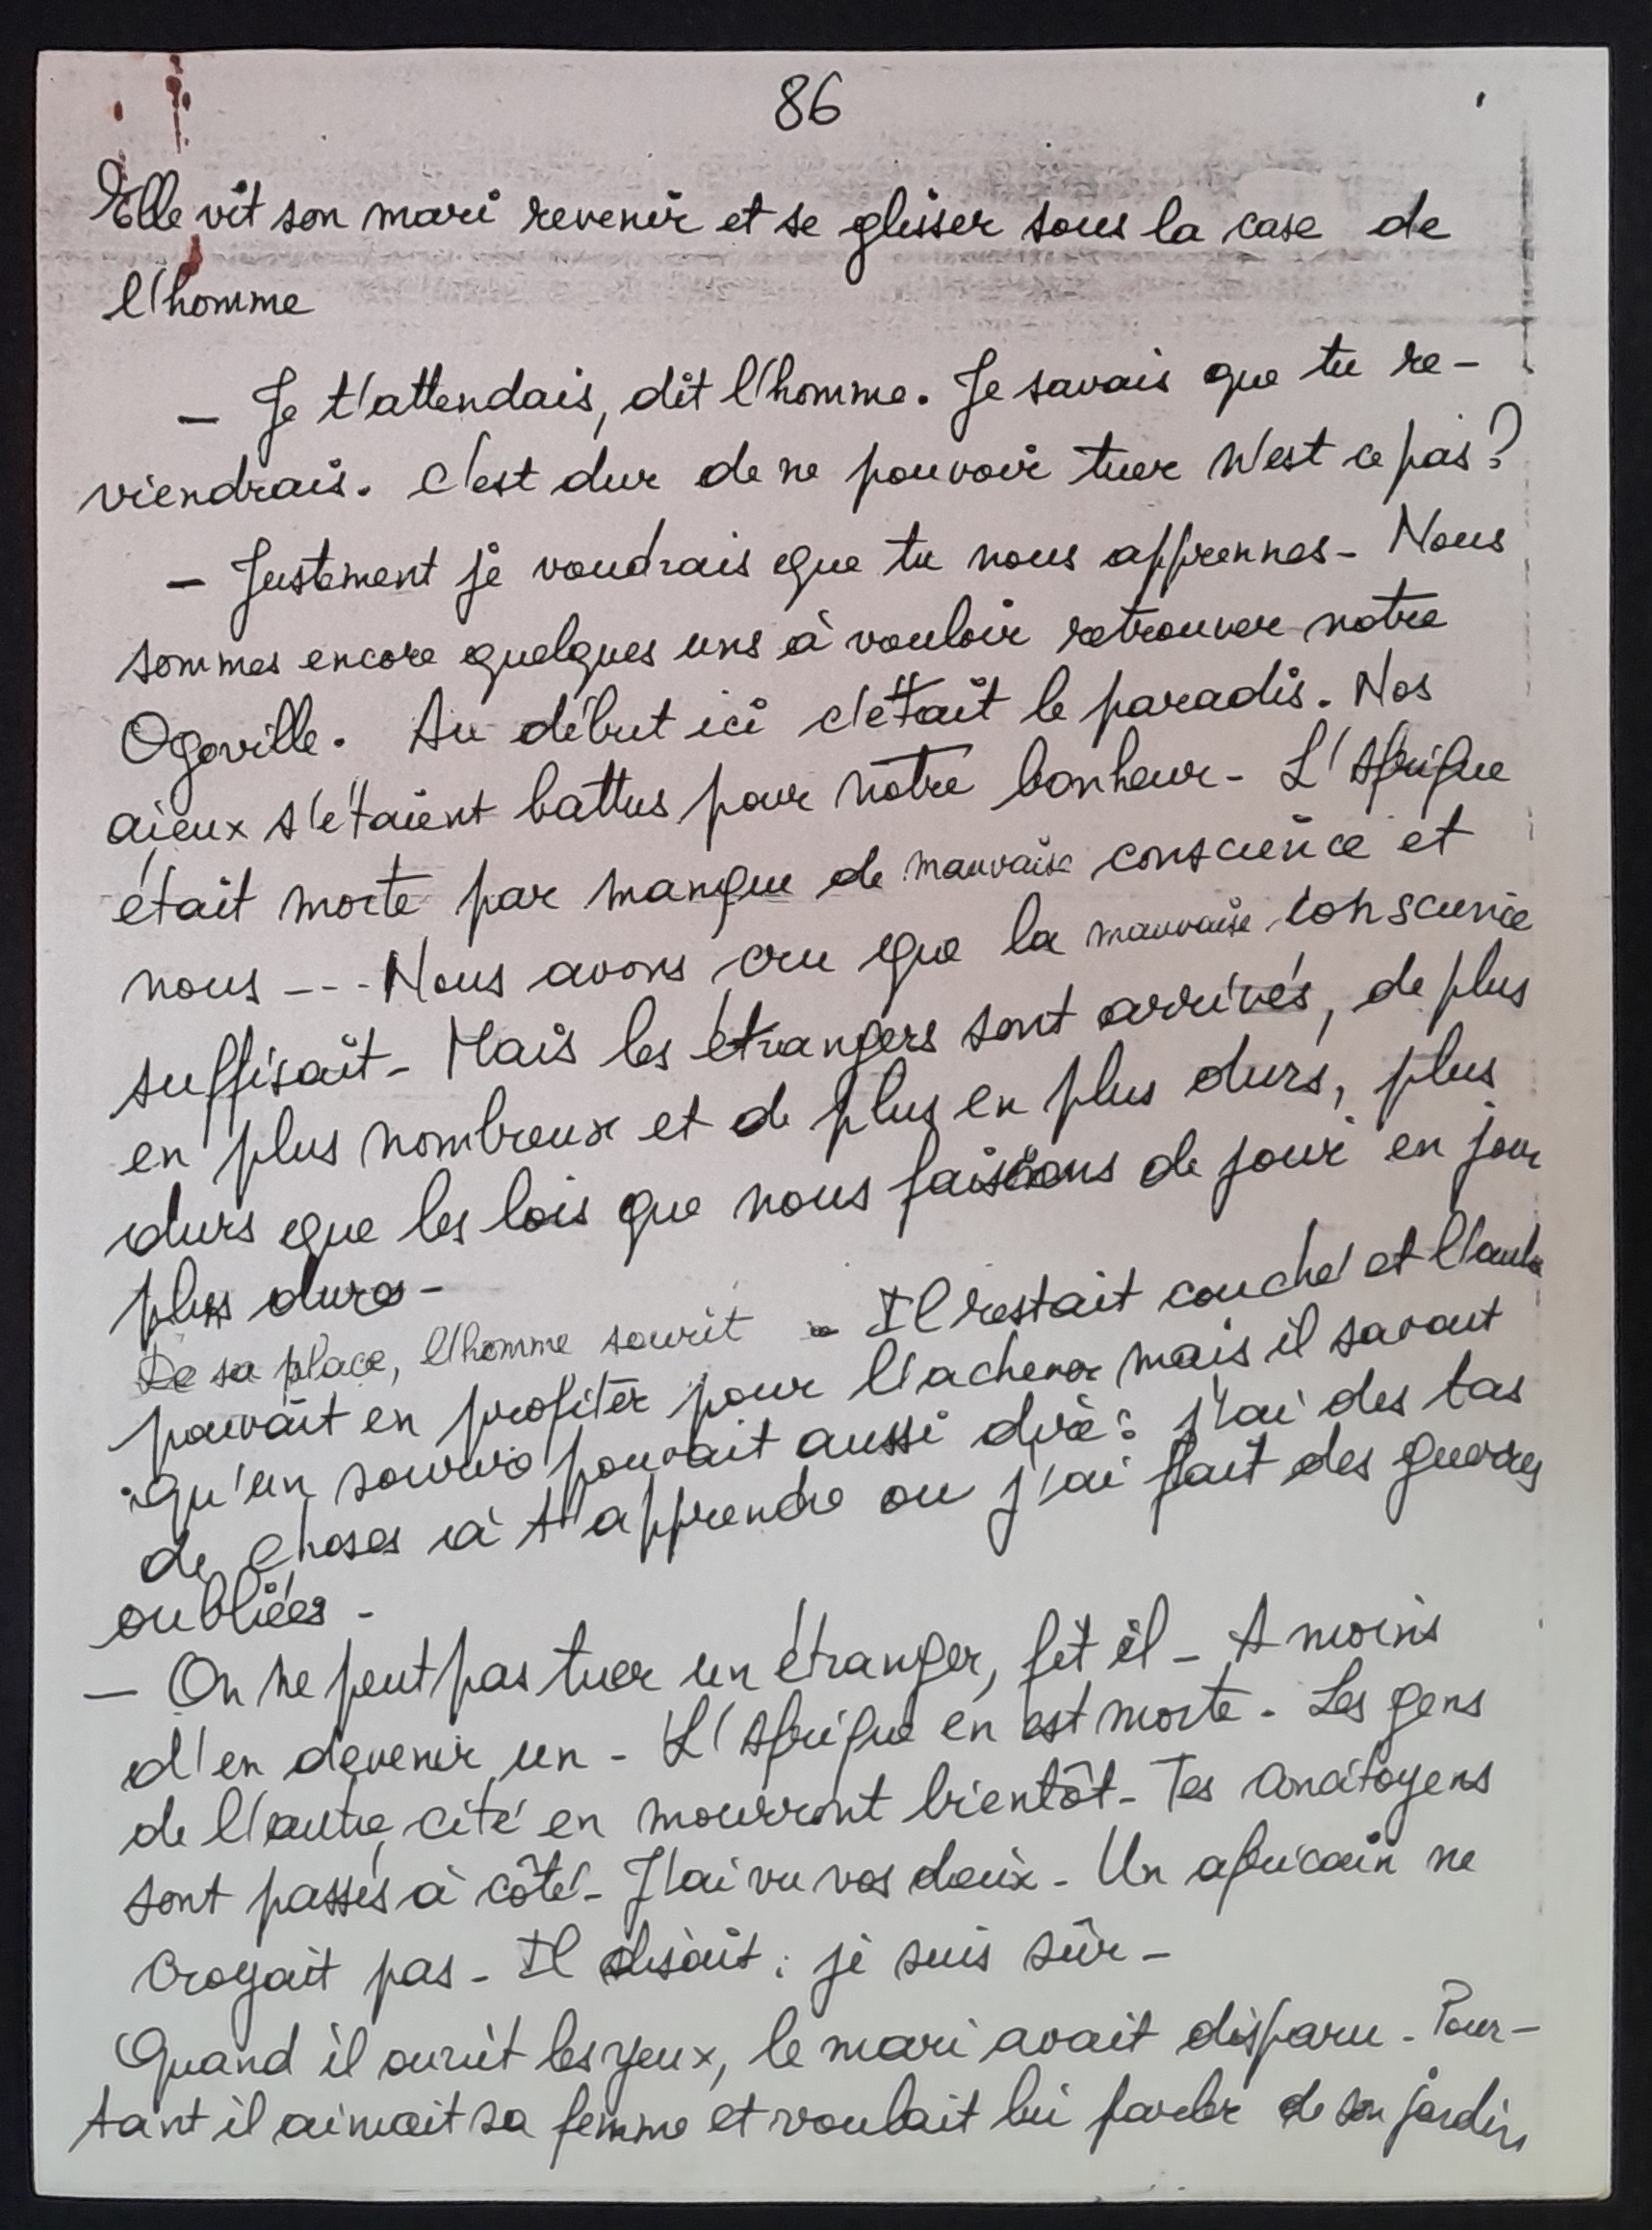 86
Elle vit son mari revenir et se glisser sous la case de
l'homme
— Je t'attendais, dit l'homme. Je savais que tu re-
viendrais. C'est dur de ne pouvoir tuer n'est ce pas ?
— Justement je voudrais que tu nous apprennes - Nous
sommes encore quelques uns à vouloir retrouver notre
Ogoville. Au début ici c'était le paradis. Nos
aïeux s'étaient battus pour notre bonheur - L'Afrique
était morte par manque de mauvaise conscience et
nous --- Nous avons cru que la mauvaise conscience
suffisait - Mais les étrangers sont arrivés, de plus
en plus nombreux et de plus en plus durs, plus
durs que les lois que nous faisions de jour en jour
plus dures -
De sa place, l'homme sourit - Il restait couché et l'autre
pouvait en profiter pour l'achever mais il savait
qu'un sourire pouvait aussi dire : j'ai des tas
de choses à t'apprendre ou j'ai fait des guerres
oubliées -
— On ne peut pas tuer un étranger, fit il - A moins
d'en devenir un - L'Afrique en est morte - Les gens
de l'autre cité en mourront bientôt - Tes concitoyens
sont passés à côté - J'ai vu vos deux - Un africain ne
croyait pas - Il disait : je suis sûr -
Quand il ouvrit les yeux, le mari avait disparu - Pour-
tant il aimait sa femme et voulait lui parler de son jardin